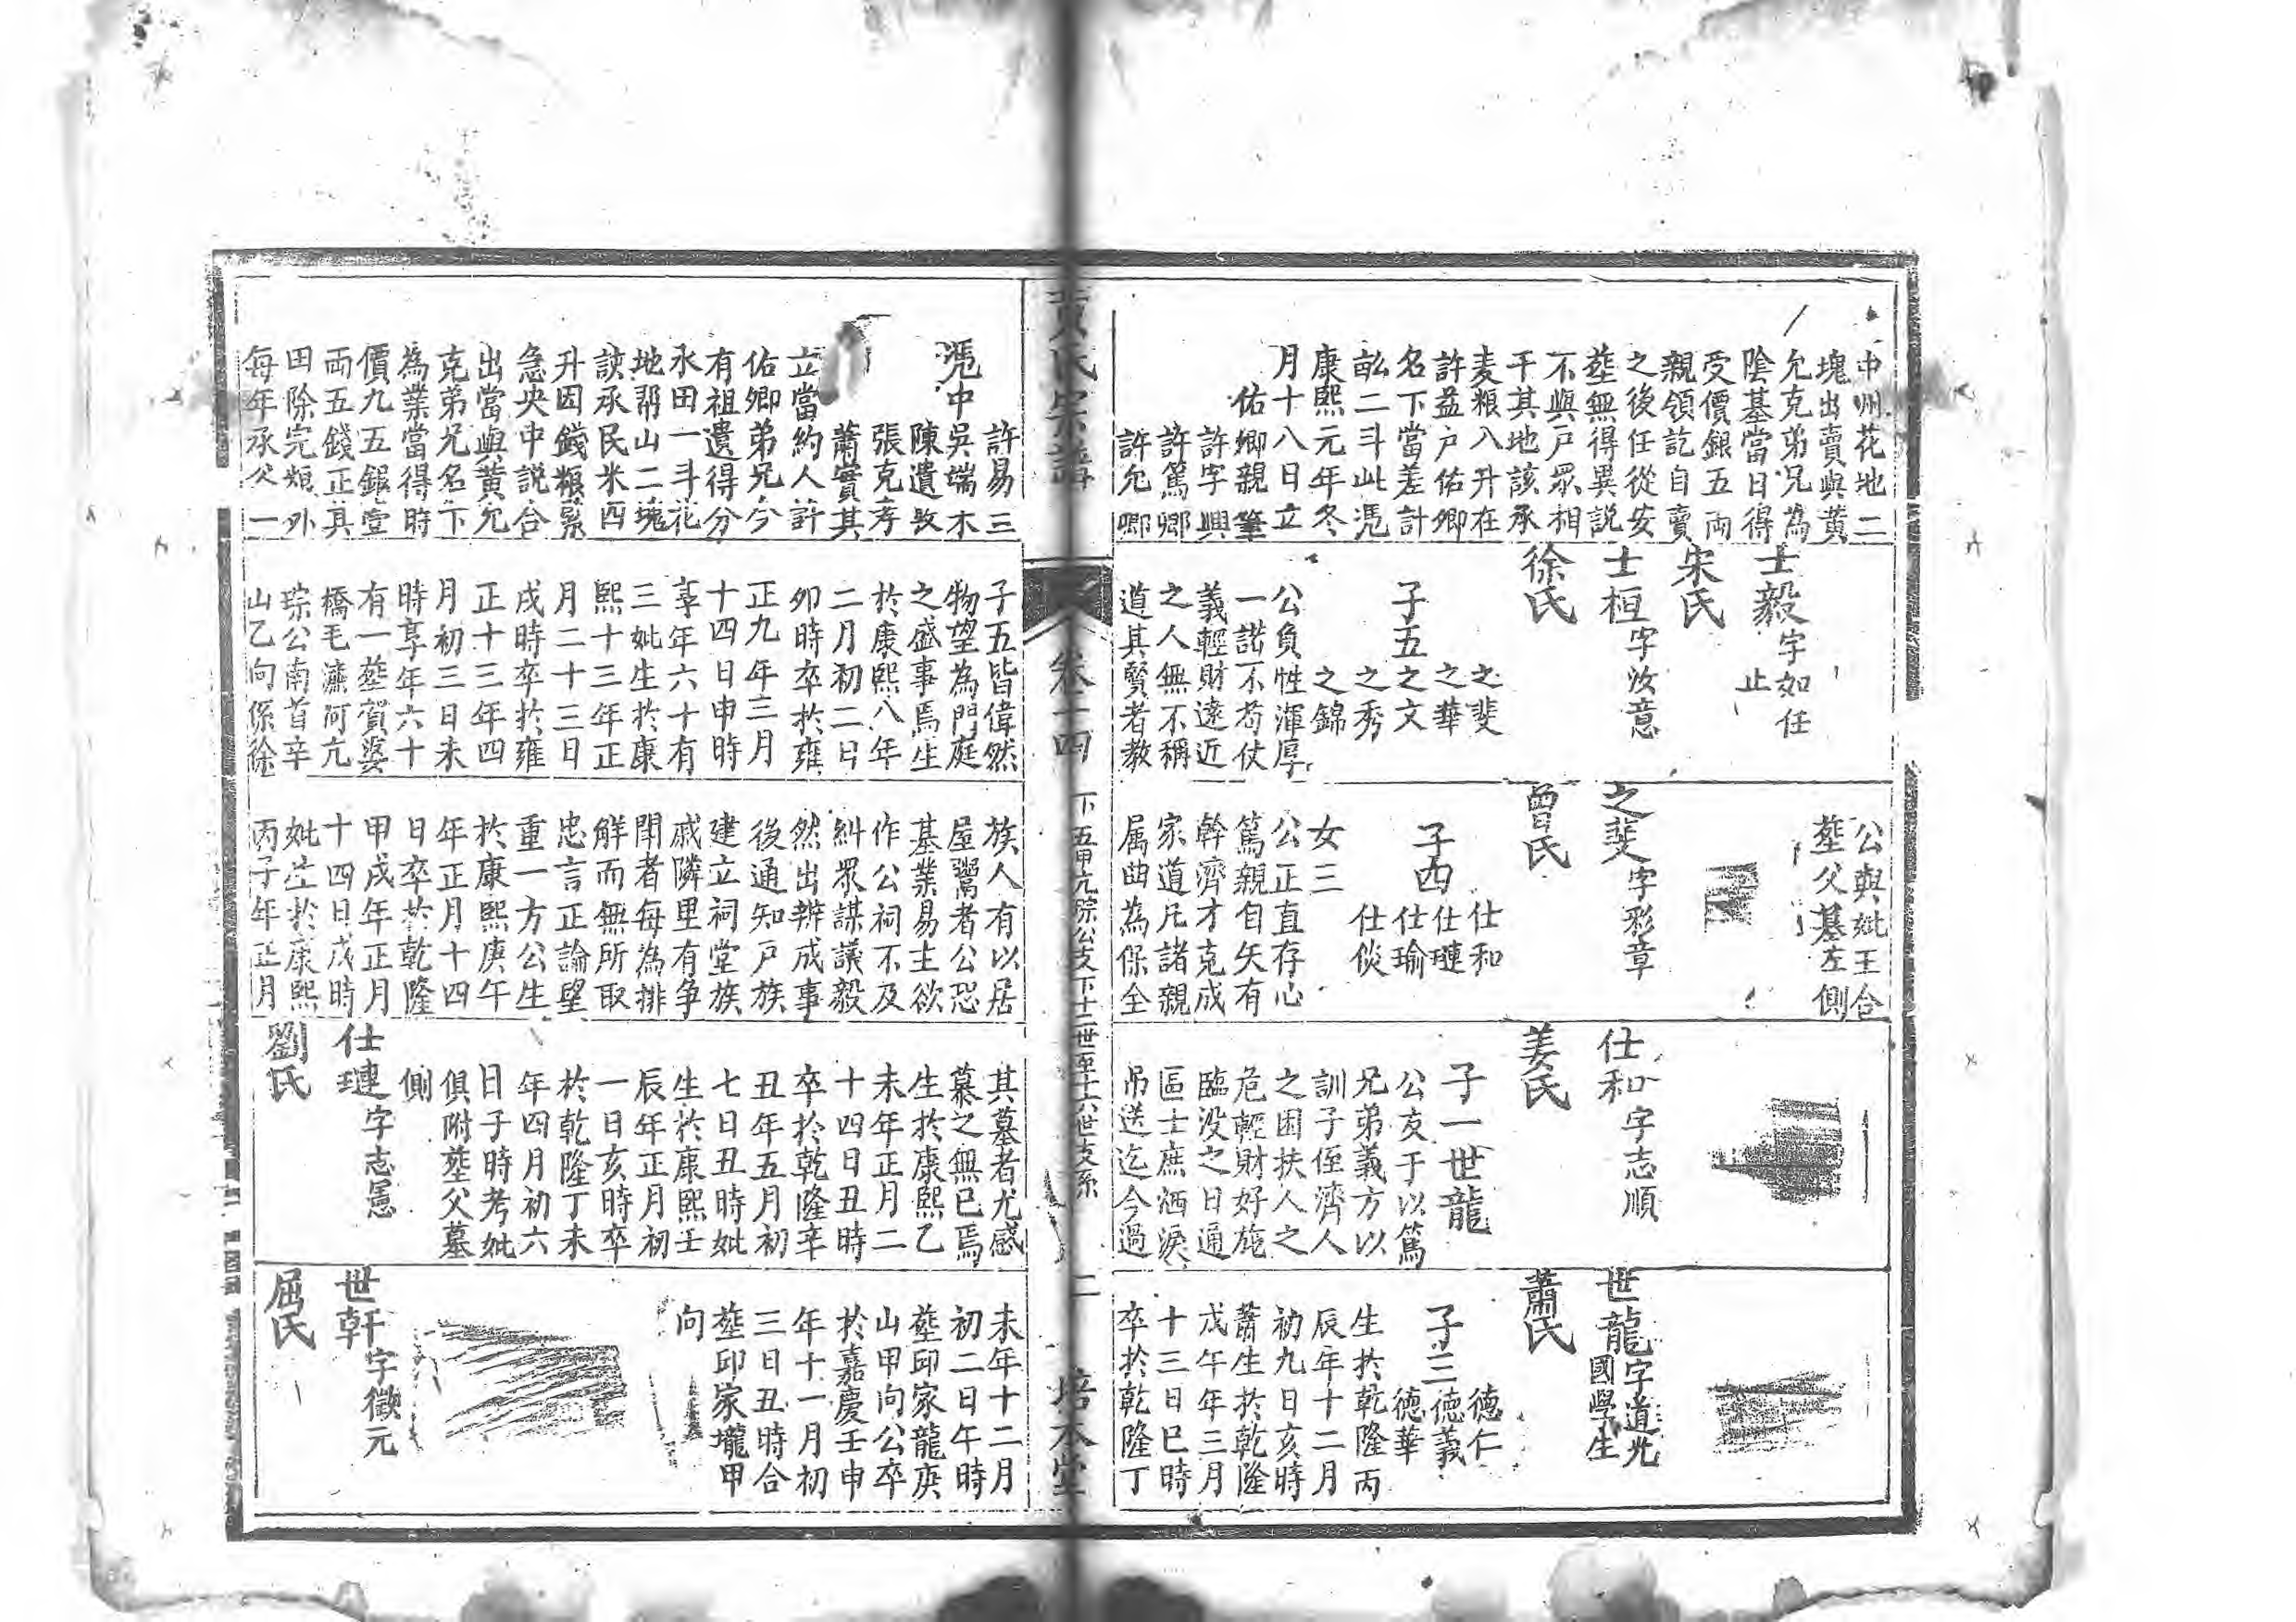 中州花地二
塊出賣與黃
允克弟兄為
陰墓當日得
受價銀五両
親領訖自賣
之後任從安
塟無得異説
不與戸眾相
干其地該承
麦粮八升在
許益户佑卿
名下當差計
訟二斗此憑
康熙元年冬
月十八日立
佑卿親筆
許字興
許篤卿
許允卿
士毅字如任
止
宋氏
士桓字汝意
徐氏
之斐
之華
子五之文
之秀
之錦
公負性渾厚
一諾不苟仗
義輕財遠近
之人無不稱
道其賢者教
公與妣王合
塟父墓左側
之斐字彩章
曾氏
仕和
仕璉
子四仕瑜
仕倓
女三
公正直存心
篤親自矢有
幹濟才克成
家道凡諸親
属曲為保全
仕和字志順
姜氏
子一世龍
公友于以篤
兄弟義方以
訓子侄濟人
之困扶人之
危輕財好施
臨没之日通
區士庶洒淚
吊送迄今過
世龍字道光
國學生
蕭氏
德仁
子三德義
德華
生於乾隆丙
辰年十二月
初九日亥時
蕭生於乾隆
戊午年三月
十三日巳時
卒於乾隆丁
黃氏宗譜
卷十四
下五甲亢琮公支下十二世至十六世支系
二
培本堂
許易三
憑中吳端木
陳遺致
張克孝
蕭實其
立當約人許
佑卿弟兄今
有祖遺得分
水田一斗花
地帮山二塊
該承民米四
升因錢粮緊
急央中説合
出當與黃允
克弟兄名下
為業當得時
價九五銀壹
両五錢正具
田除完粮外
每年承父一
子五皆偉然
物望為門庭
之盛事焉生
於康熙八年
二月初二日
卯時卒於雍
正九年三月
十四日申時
享年六十有
三妣生於康
熙十三年正
月二十三日
戌時卒於雍
正十三年四
月初三日未
時享年六十
有一塟賀婆
橋毛瀟河亢
琮公南首辛
山乙向係徐
族人有以居
屋鬻者公恐
基業易主欲
作公祠不及
糾眾謀議毅
然出辦成事
後通知戸族
建立祠堂族
戚隣里有争
閗者每為排
解而無所取
忠言正論望
重一方公生
於康熙庚午
年正月十四
日卒於乾隆
甲戌年正月
十四日戌時
妣生於康熙
丙子年正月
其墓者尤感
慕之無已焉
生於康熙乙
未年正月二
十四日丑時
卒於乾隆辛
丑年五月初
七日丑時妣
生於康熙壬
辰年正月初
一日亥時卒
於乾隆丁未
年四月初六
日子時考妣
俱附塟父墓
側
仕璉字志憲
劉氏
未年十二月
初二日午時
塟邱家龍庚
山甲向公卒
於嘉慶壬申
年十一月初
三日丑時合
塟邱家壠甲
向
世軒字徵元
屈氏